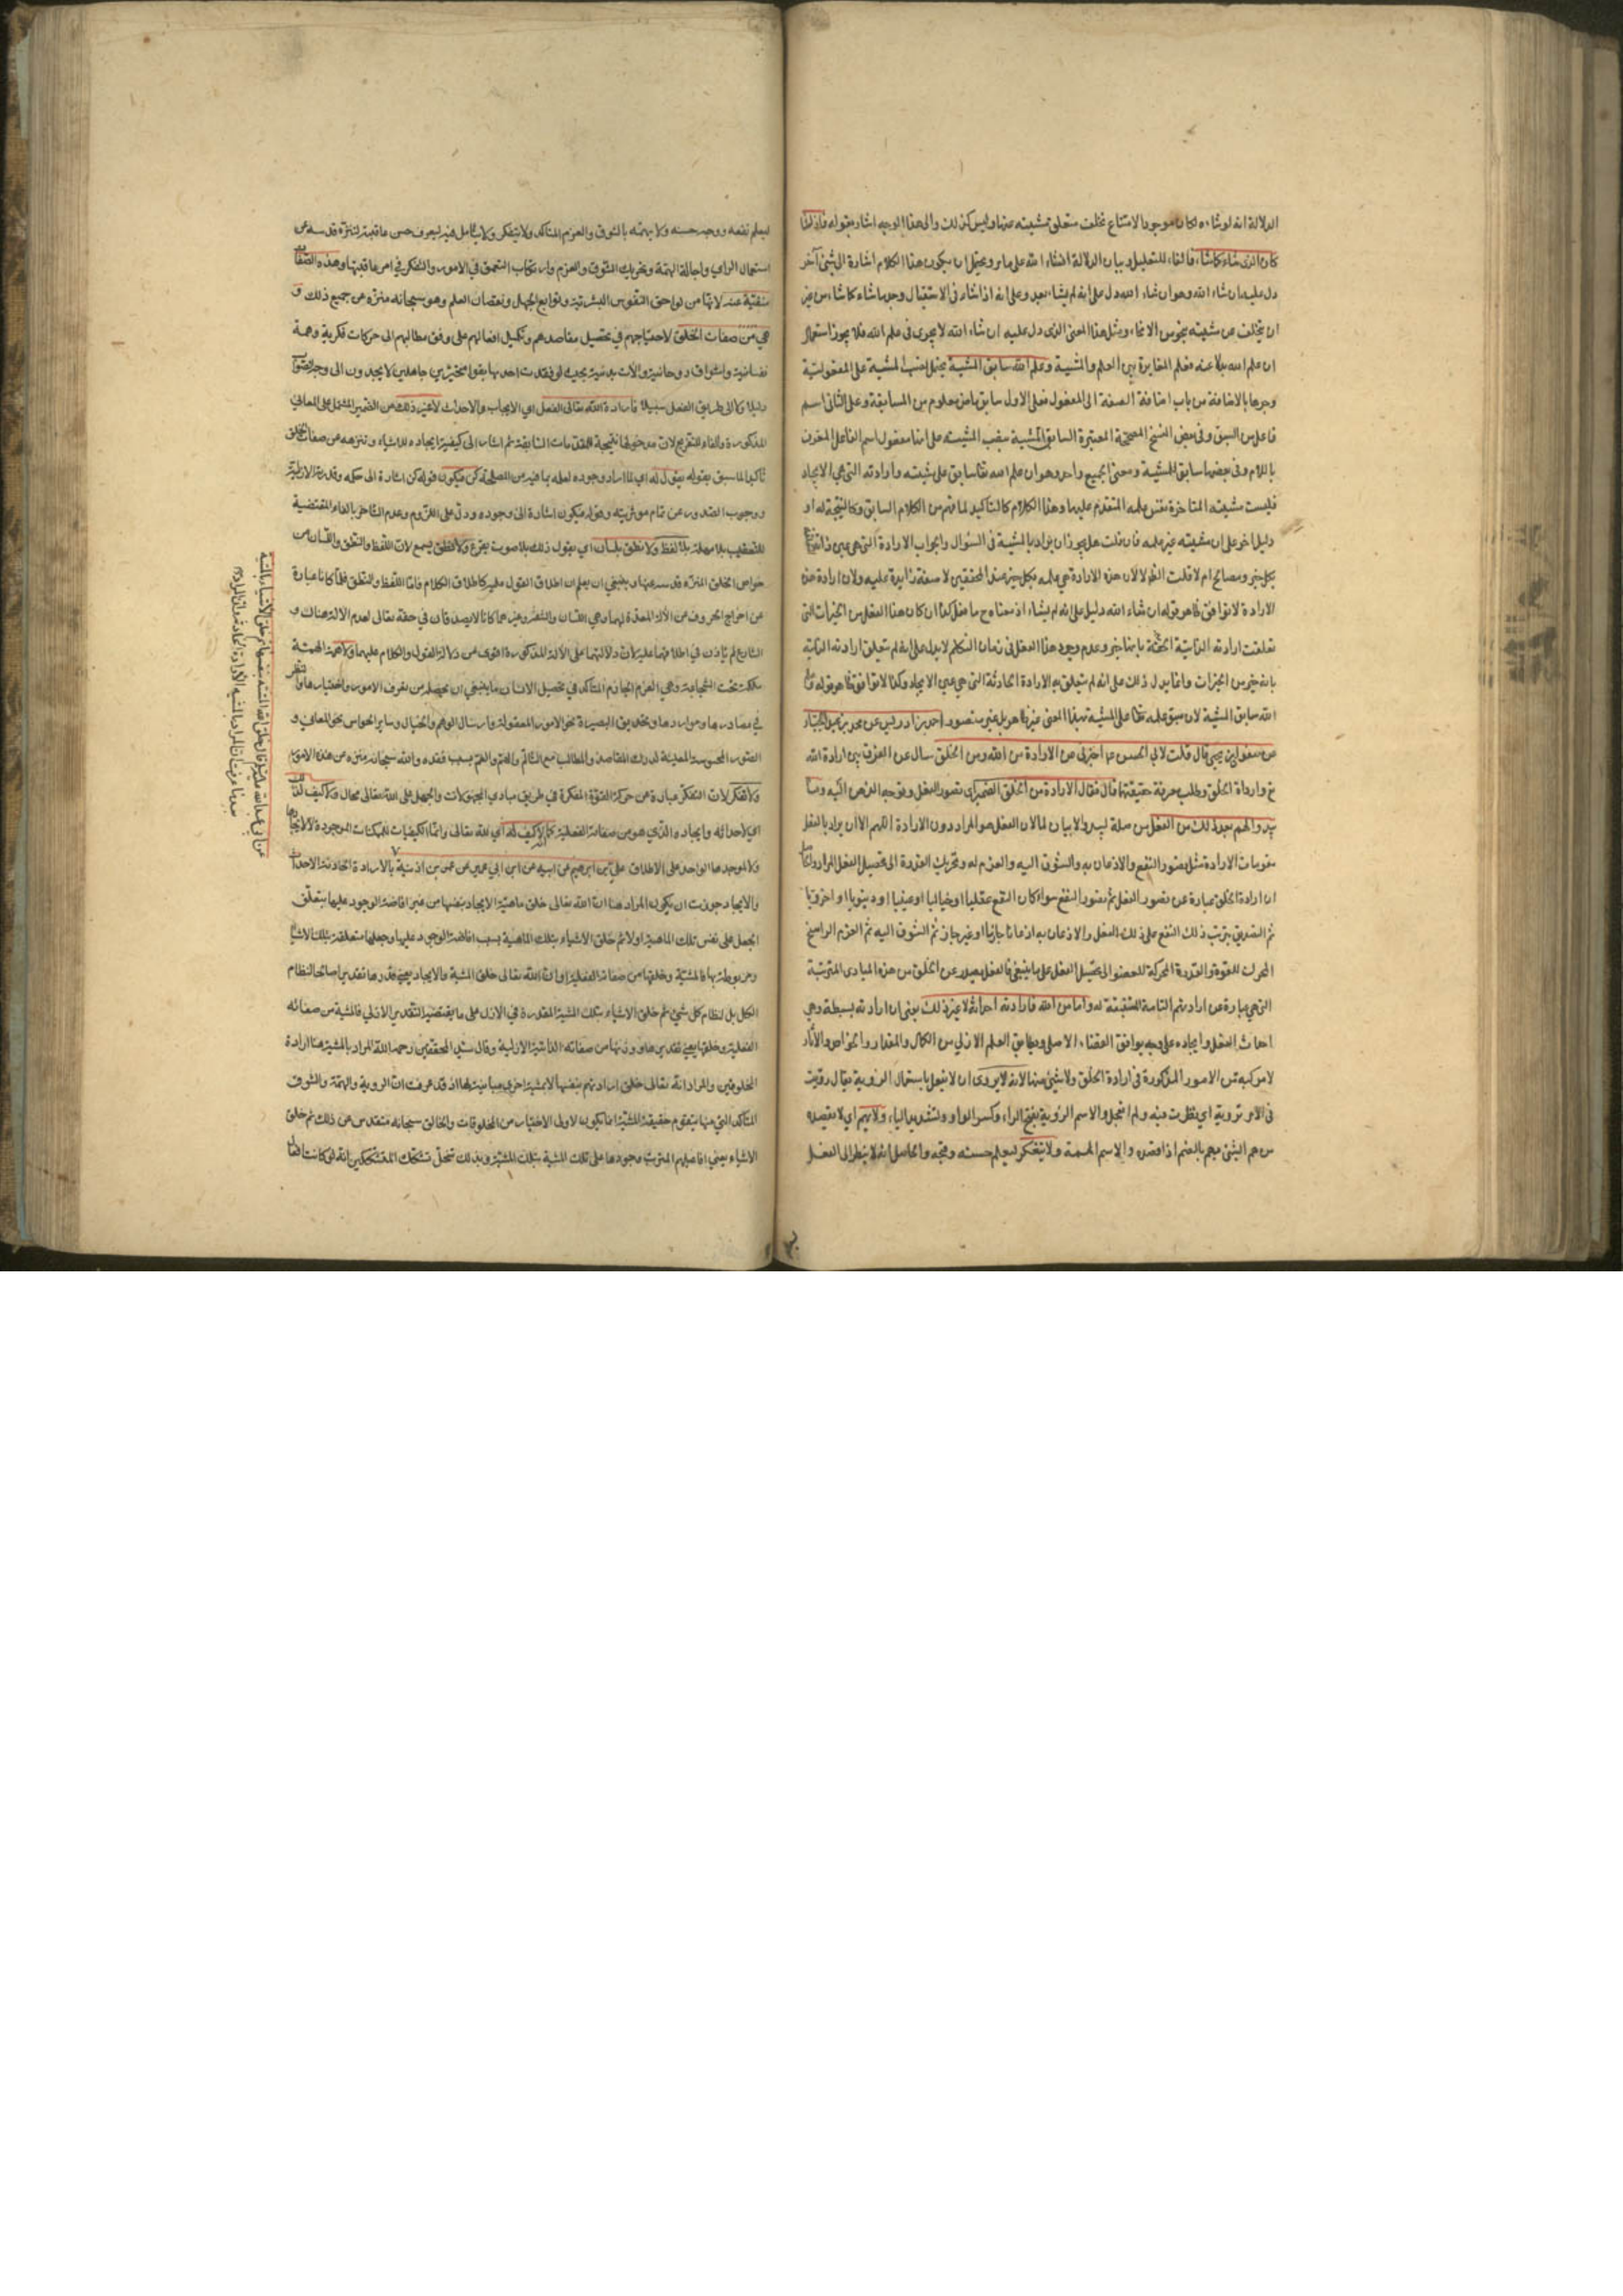 الدلالة انه لو شاءه لكان موجودا لامتناع تخلف متعلق مشيته عنها وليس كذلك والى هذا الوجه اشار بقوله فاذا شاء
كان الذى شاء كما شاء فالفاء للتعليل وبيان الدلالة انشاء الله على ما مر ويحتمل ان يكون هذا الكلام اشارة الى شئ آخر
دل عليه ان شاء الله وهو ان شاء الله دل على انه لم يشاء بعد وعلى انه اذا شاء فى الاستقبال وجد ما شاء كما شاء من غير
ان يتخلف عن مشيته بنحو من الانحاء ومثل هذا المعنى الذى دل عليه ان شاء الله لا يجرى فى علم الله فلا يجوز استعمال
ان علم الله بدلا عنه فعلم المغايرة بين العلم والمشية وعلم الله سابق المشية يحتمل نصب المشية على المفعولية
وجرها بالاضافة من باب اضافة الصفة الى المفعول فعلى الاول سابق ماض معلوم من المسابقة وعلى الثانى اسم
فاعل من السبق وفى بعض النسخ المصححة المعتبرة السابق المشية بنصب المشية على انها مفعول اسم الفاعل المعرف
باللام وفى بعضها سابق للمشية ومعنى الجميع واحد وهو ان علم الله تعالى سابق على مشيته وارادته التى هى الايجاد
فليست مشيته المتاخرة نفس علمه المتقدم عليها وهذا الكلام كالتاكيد لما فهم من الكلام السابق وكالنتيجة له او
دليل اخر على ان مشيته غير علمه فان قلت هل يجوز ان يراد بالمشية فى السؤال والجواب الارادة التى هى عين ذاته
بكل خير ومصالح ام لا قلت الظم لا لان هذه الارادة هى علمه بكل خير عند المحققين لا صفة زايدة عليه ولان ارادة هذه
الارادة لا توافق ظاهر قوله ان شاء الله دليل على انه لم يشاء اذ معناه ح ما فعل كذا ان كان هذا الفعل من الخيرات التى
تعلقت ارادته الذاتية الحقة بانها خير وعدم وجود هذا الفعل فى زمان التكلم لا يدل على انه لم يتعلق ارادته الذاتية
بانه خير من الخيرات وانما يدل ذلك على انه لم يتعلق به الارادة الحادثة التى هى عين الايجاد وكذا لا توافق ظاهر قوله وعلم
الله سابق المشية لان سبق علمه تعالى على المشية بهذا المعنى غير ظاهر بل غير متصور احمد بن ادريس عن محمد بن عبد الجبار
عن صفوان بن يحيى قال قلت لابى الحسن ع اخبرنى عن الارادة من الله ومن الخلق سال عن الفرق بين ارادة الله
تع وارادة الخلق وطلب معرفة حقيقتها قال فقال الارادة من الخلق الضمير اى تصور الفعل وتوجه الذهن اليه وما
يبدو لهم بعد ذلك من الفعل من صلة ليبدو لا بيان لما لان الفعل هو المراد دون الارادة اللهم الا ان يراد بالفعل
مقومات الارادة مثل تصور النفع والاذعان به والشوق اليه والعزم له وتحريك القدرة الى تحصيل الفعل المراد
ان ارادة الخلق عبارة عن تصور الفعل ثم تصور النفع سواء كان النفع عقليا او خياليا او عينيا او دينويا او اخرويا
ثم التصديق بترتب ذلك النفع على ذلك الفعل والاذعان به اذعانا جازما او غير جازم ثم الشوق اليه ثم العزم الراسخ
المحرك للقوة والقدرة المحركة للعضو الى تحصيل الفعل على ما ينبغى فالفعل يصدر عن الخلق من هذه المبادى المترتبة
التى هى عبارة عن ارادتهم التامة المستتبعة له واما من الله فارادته احداثه لا غير ذلك يعنى ان ارادته بسيطة وهى
احداث الفعل وايجاده على وجه يوافق القضاء الاصلى ويطابق العلم الازلى من الكمال والمقدار والخواص والآثار
لا مركبة من الامور المذكورة فى ارادة الخلق ولا شئ منها لانه لا يروى اى لا يفعل باستعمال الروية يقال رويت
فى الامر تروية اى نظرت فيه ولم اتعجل والاسم الروية بفتح الراء وكسر الواو وتشديد الياء ولا يهم اى لا يقصده
من هم الشئ يهم بالضم اذا قصده والاسم الهمة ولا يتفكر ليعلم حسنه وقبحه والحاصل انه لا ينظر الى الفعل
ليعلم نفعه ووجه حسنه ولا يهمه بالشوق والعزم المتاكد ولا يتفكر ولا يتامل فيه ليعرف حسن عاقبته لتنزه قدسه عن
استعمال الراي واجالة الهمة وتحريك الشوق والعزم وارتكاب التعمق في الامور والتفكر في امر عاقبتها وهذه الصفات
منفية عنه لانها من لواحق النفوس البشرية وتوابع الجهل ونقصان العلم وهو سبحانه منزه عن جميع ذلك و
هي من صفات الخلق لاحتياجهم في تحصيل مقاصدهم وتكميل افعالهم على وفق مطالبهم الى حركات فكرية وهمة
نفسانية واشواق روحانية وآلات بدنية بحيث لو فقدت احدها بقوا متحيرين جاهلين لا يجدون الى وجه الصواب
دليلا ولا الى طريق الفعل سبيلا فارادة الله تعالى الفعل اي الايجاب والاحداث لا غير ذلك من الضمير المشتمل على المعاني
المذكورة والفاء للتفريع لان مدخولها نتيجة للمقدمات السابقة ثم اشار الى كيفية ايجاده للاشياء وتنزهه عن صفات الخلق
تاكيدا لما سبق بقوله يقول له اي لما اراد وجوده لعلمه بما فيه من المصلحة كن فيكون قوله كن اشارة الى حكمه وقدرته الازلية
ووجوب الصدور عن تمام مؤثريته وقوله فيكون اشارة الى وجوده ودل على اللزوم وعدم التاخر بالفاء المقتضية
للتعقيب بلا مهلة بلا لفظ ولا نطق بلسان اي يقول ذلك بلا صوت يقرع ولا نطق يسمع لان اللفظ والنطق واللسان من
خواص الخلق المنزه قدسه عنها وينبغي ان يعلم ان اطلاق القول عليه كاطلاق الكلام فاما اللفظ والنطق فلما كانا عبارة
عن اخراج الحروف من الآلة المعدة لهما وهي اللسان والشفة وغيرهما كانا لا يصدقان في حقه تعالى لعدم الالة هناك و
الشارع لم ياذن في اطلاقهما عليه لان دلالتهما على الآلة المذكورة اقوى من دلالة القول والكلام عليها ولا همة الهمة
وهي العزم الجازم المتاكد في تحصيل الانسان ما ينبغي ان يحصله من تعرف الامور واختيارها والنظر
في مصادرها ومواردها وتحديق البصيرة نحو الامور المعقولة وارسال الوهم والخيال وساير الحواس نحو المعاني و
الصور المحسوسة المعينة لدرك المقاصد والمطالب مع التالم والغم بسبب فقده والله سبحانه منزه عن هذه الامور
ولا تفكر لان التفكر عبارة عن حركة القوة المفكرة في طريق مبادي المجهولات والجهل على الله تعالى محال ولا كيف لذلك
اي لاحداثه وايجاده الذي هو من صفاته الفعلية كما لا كيف له اي لله تعالى وانما الكيفيات للممكنات الموجودة لا لايجادها
ولا لموجدها الواحد على الاطلاق علي بن ابرهيم عن ابيه عن ابن ابي عمير عن عمر بن اذينة بالارادة الحادثة الاحداث
والايجاد جوزت ان يكون المراد هنا ان الله تعالى خلق ماهية الايجاد بنفسها من غير افاضة الوجود عليها بتعلق
الجعل على نفس تلك الماهية اولا ثم خلق الاشياء بتلك الماهية بسبب افاضة الوجود عليها وجعلها متعلقة بتلك الاشياء
ومربوطة بها فالمشية وخلقها من صفاته الفعلية او ان الله تعالى خلق المشية والايجاد يعني قدرها تقديرا صالحا لنظام
الكل بل لنظام كل شيئ ثم خلق الاشياء بتلك المشية المقدرة في الازل على ما يقتضيه التقدير الازلي فالمشية من صفاته
الفعلية وخلقها يعني تقديرها ووزنها من صفاته الذاتية الازلية وقال سيد المحققين رحمه الله المراد بالمشية هنا ارادة
المخلوقين والمراد انه تعالى خلق ارادتهم بنفسها لا بمشية اخرى مباينة لها اذ قد عرفت ان الروية والهمة والشوق
المتاكد التي منها يتقوم حقيقة المشية انما يكون لاولى الاختيار من المخلوقات والخالق سبحانه متقدس عن ذلك ثم خلق
الاشياء يعني افاعيلهم المترتب وجودها على تلك المشية بتلك المشية وبذلك تنحل تشكك المتشككين انه لو كانت افعال
عن ابي عبد الله عليه السلام قال خلق الله المشية بنفسها ثم خلق الاشياء بالمشية